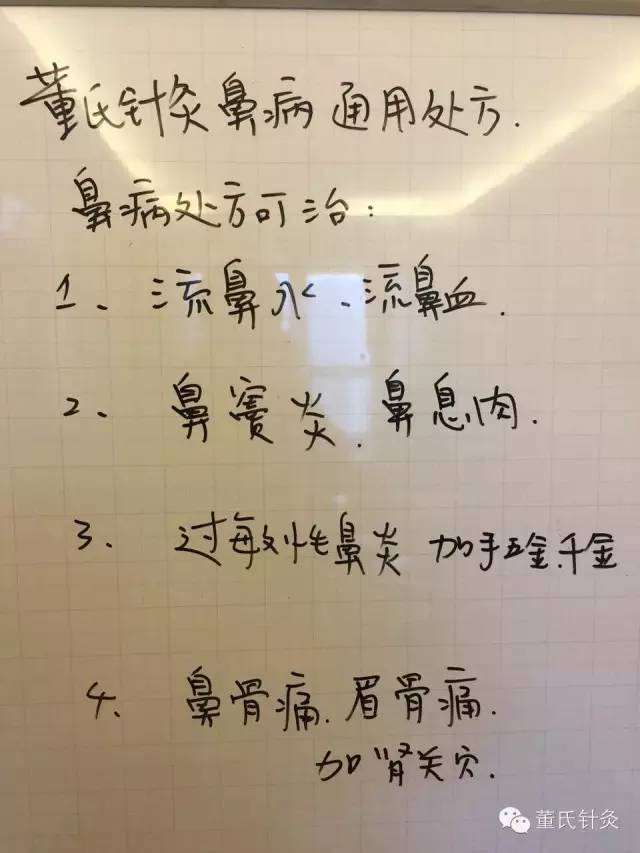 董氏针灸鼻病通用处方.
鼻病处方可治:
1、流鼻水、流鼻血.
2、鼻窦炎、鼻息肉.
3、过敏性鼻炎 加手五金.千金
4、鼻骨痛.眉骨痛.
加肾关穴.
董氏针灸